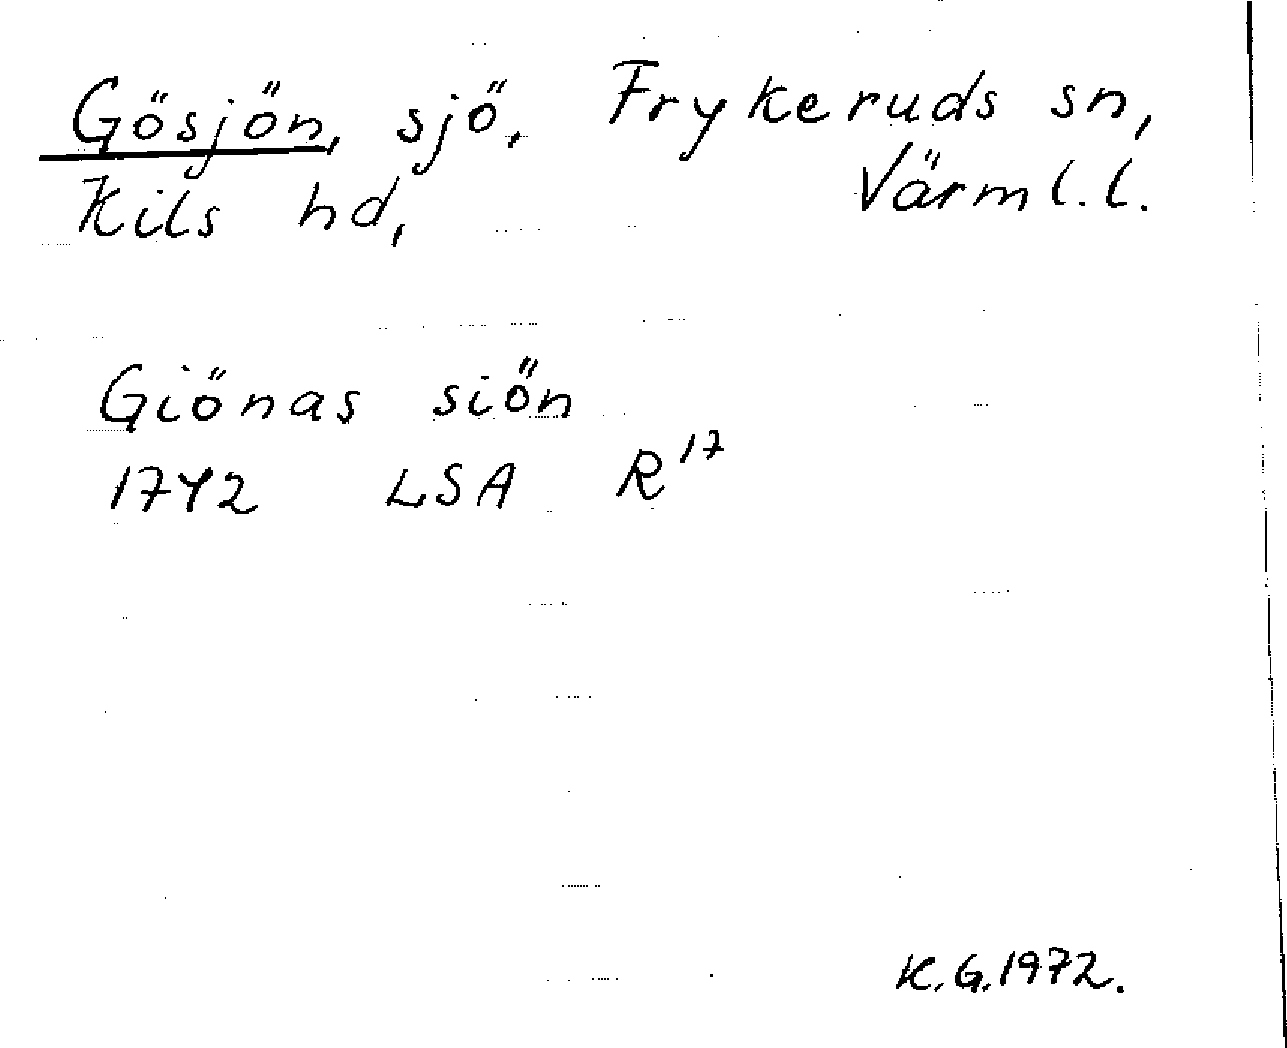 Gösjön, sjö, Frykeruds sn,
Kils hd, Värml.l.
Giönas siön
1742 LSA R¹⁷
K.G.1972.